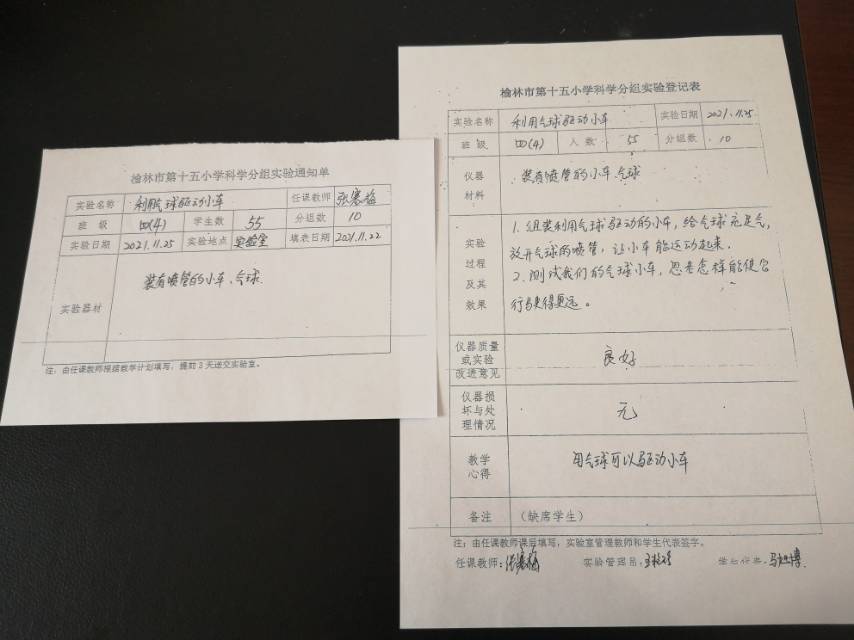 榆林市第十五小学科学分组实验通知单
实验名称 利用气球驱动小车 任课教师 张寒梅
班 级 四(4) 学生数 55 分组数 10
实验日期 2021.11.25 实验地点 实验室 填表日期 2021.11.22
实验器材 装有喷管的小车、气球
注:由任课教师根据教学计划填写,提前3天送交实验室。
榆林市第十五小学科学分组实验登记表
实验名称 利用气球驱动小车 实验日期 2021.11.25
班 级 四(4) 人 数 55 分组数 10
仪器材料 装有喷管的小车、气球
实验过程及其效果
1. 组装利用气球驱动的小车,给气球充足气,
放开气球的喷管,让小车能运动起来.
2. 测试我们的气球小车,思考怎样能使它
行驶得更远。
仪器质量或实验改进意见 良好
仪器损坏与处理情况 无
教学心得 用气球可以驱动小车
备注 (缺席学生)
注:由任课教师课后填写,实验室管理教师和学生代表签字。
任课教师: 实验管理员: 学生代表: